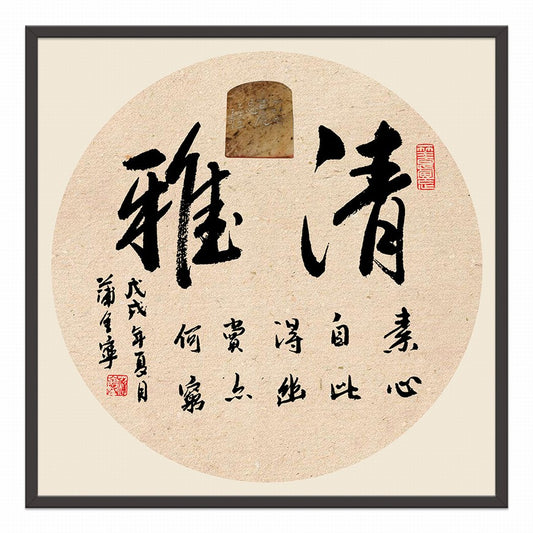 清雅
素心
自此
得幽
赏亦
何穷
戊戌年夏月
蒲生寧